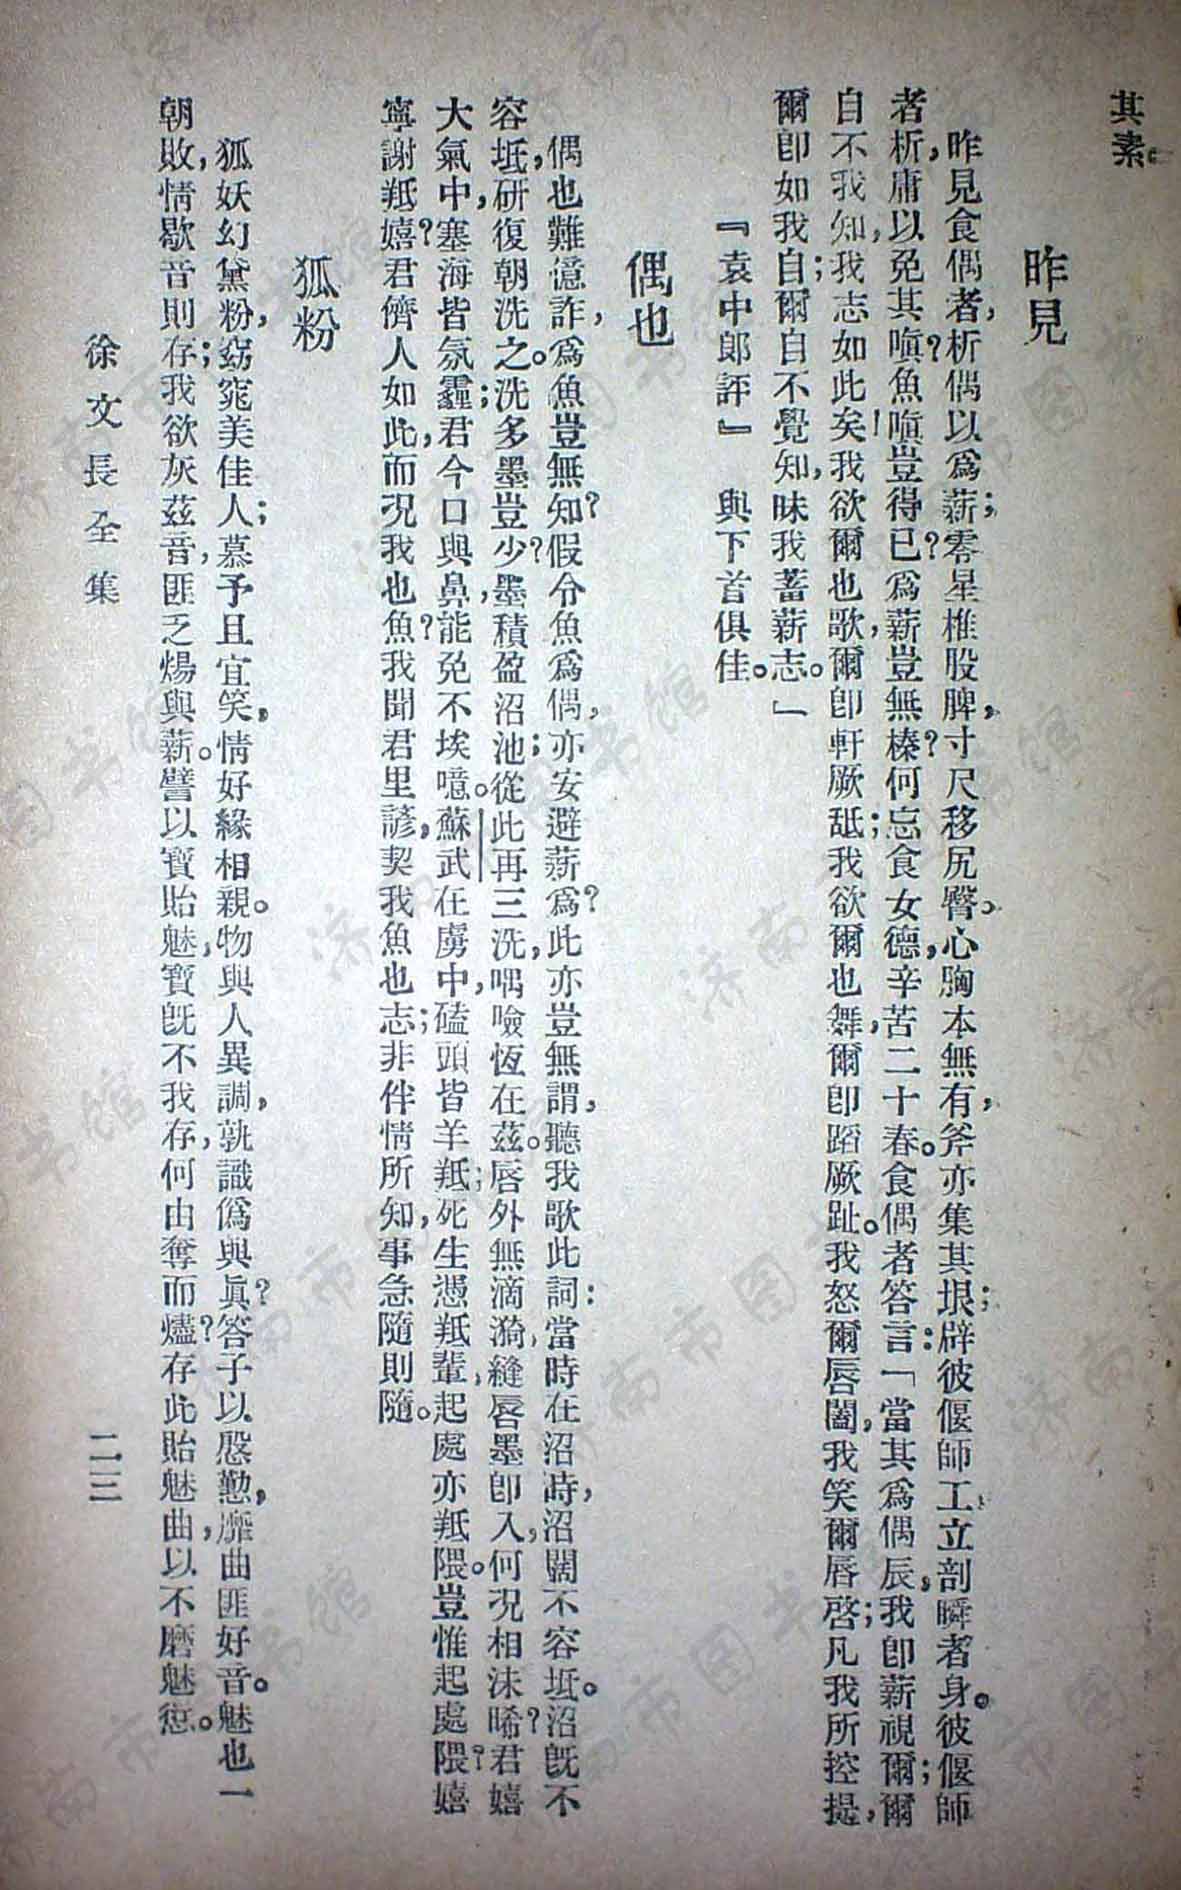 其素。
昨見
昨見食偶者，析偶以爲薪；零星椎股脾，寸尺移尻臀。心胸本無有，斧亦集其垠；辟彼偃師工，立剖瞬者身。彼偃師
者析，庸以免其嗔？魚嗔豈得已？爲薪豈無榛？何忘食女德，辛苦二十春。食偶者答言：「當其爲偶辰，我卽薪視爾；爾
自不我知，我志如此矣！我欲爾也歌，爾卽軒厥舐；我欲爾也舞，爾卽蹈厥趾。我怒爾唇闔，我笑爾唇啓；凡我所控提，
爾卽如我自；爾自不覺知，昧我蓄薪志。」
『袁中郞評』　與下首俱佳。
偶也
偶也難億詐，爲魚豈無知？假令魚爲偶，亦安避薪爲？此亦豈無謂，聽我歌此詞：當時在沼時，沼闊不容坻。沼旣不
容坻，研復朝洗之。洗多墨豈少？墨積盈沼池；從此再三洗，喁噞恆在茲。唇外無滴漪，縫唇墨卽入，何況相沫晞？君嬉
大氣中，塞海皆氛霾；君今口與鼻，能免不埃噫。蘇武在虜中，磕頭皆羊羝；死生憑羝輩，起處亦羝隈。豈惟起處隈？嬉
寧謝羝嬉？君儕人如此，而況我也魚？我聞君里諺，契我魚也志；非伴情所知，事急隨則隨。
狐粉
狐妖幻黛粉，窈窕美佳人；慕予且宜笑，情好緣相親。物與人異調，孰識僞與眞？答子以慇懃，靡曲匪好音。魅也一
朝敗，情歇音則存；我欲灰茲音，匪乏煬與薪。譬以寶貽魅，寶旣不我存，何由奪而燼？存此貽魅曲，以不磨魅愆。
徐文長全集
二三